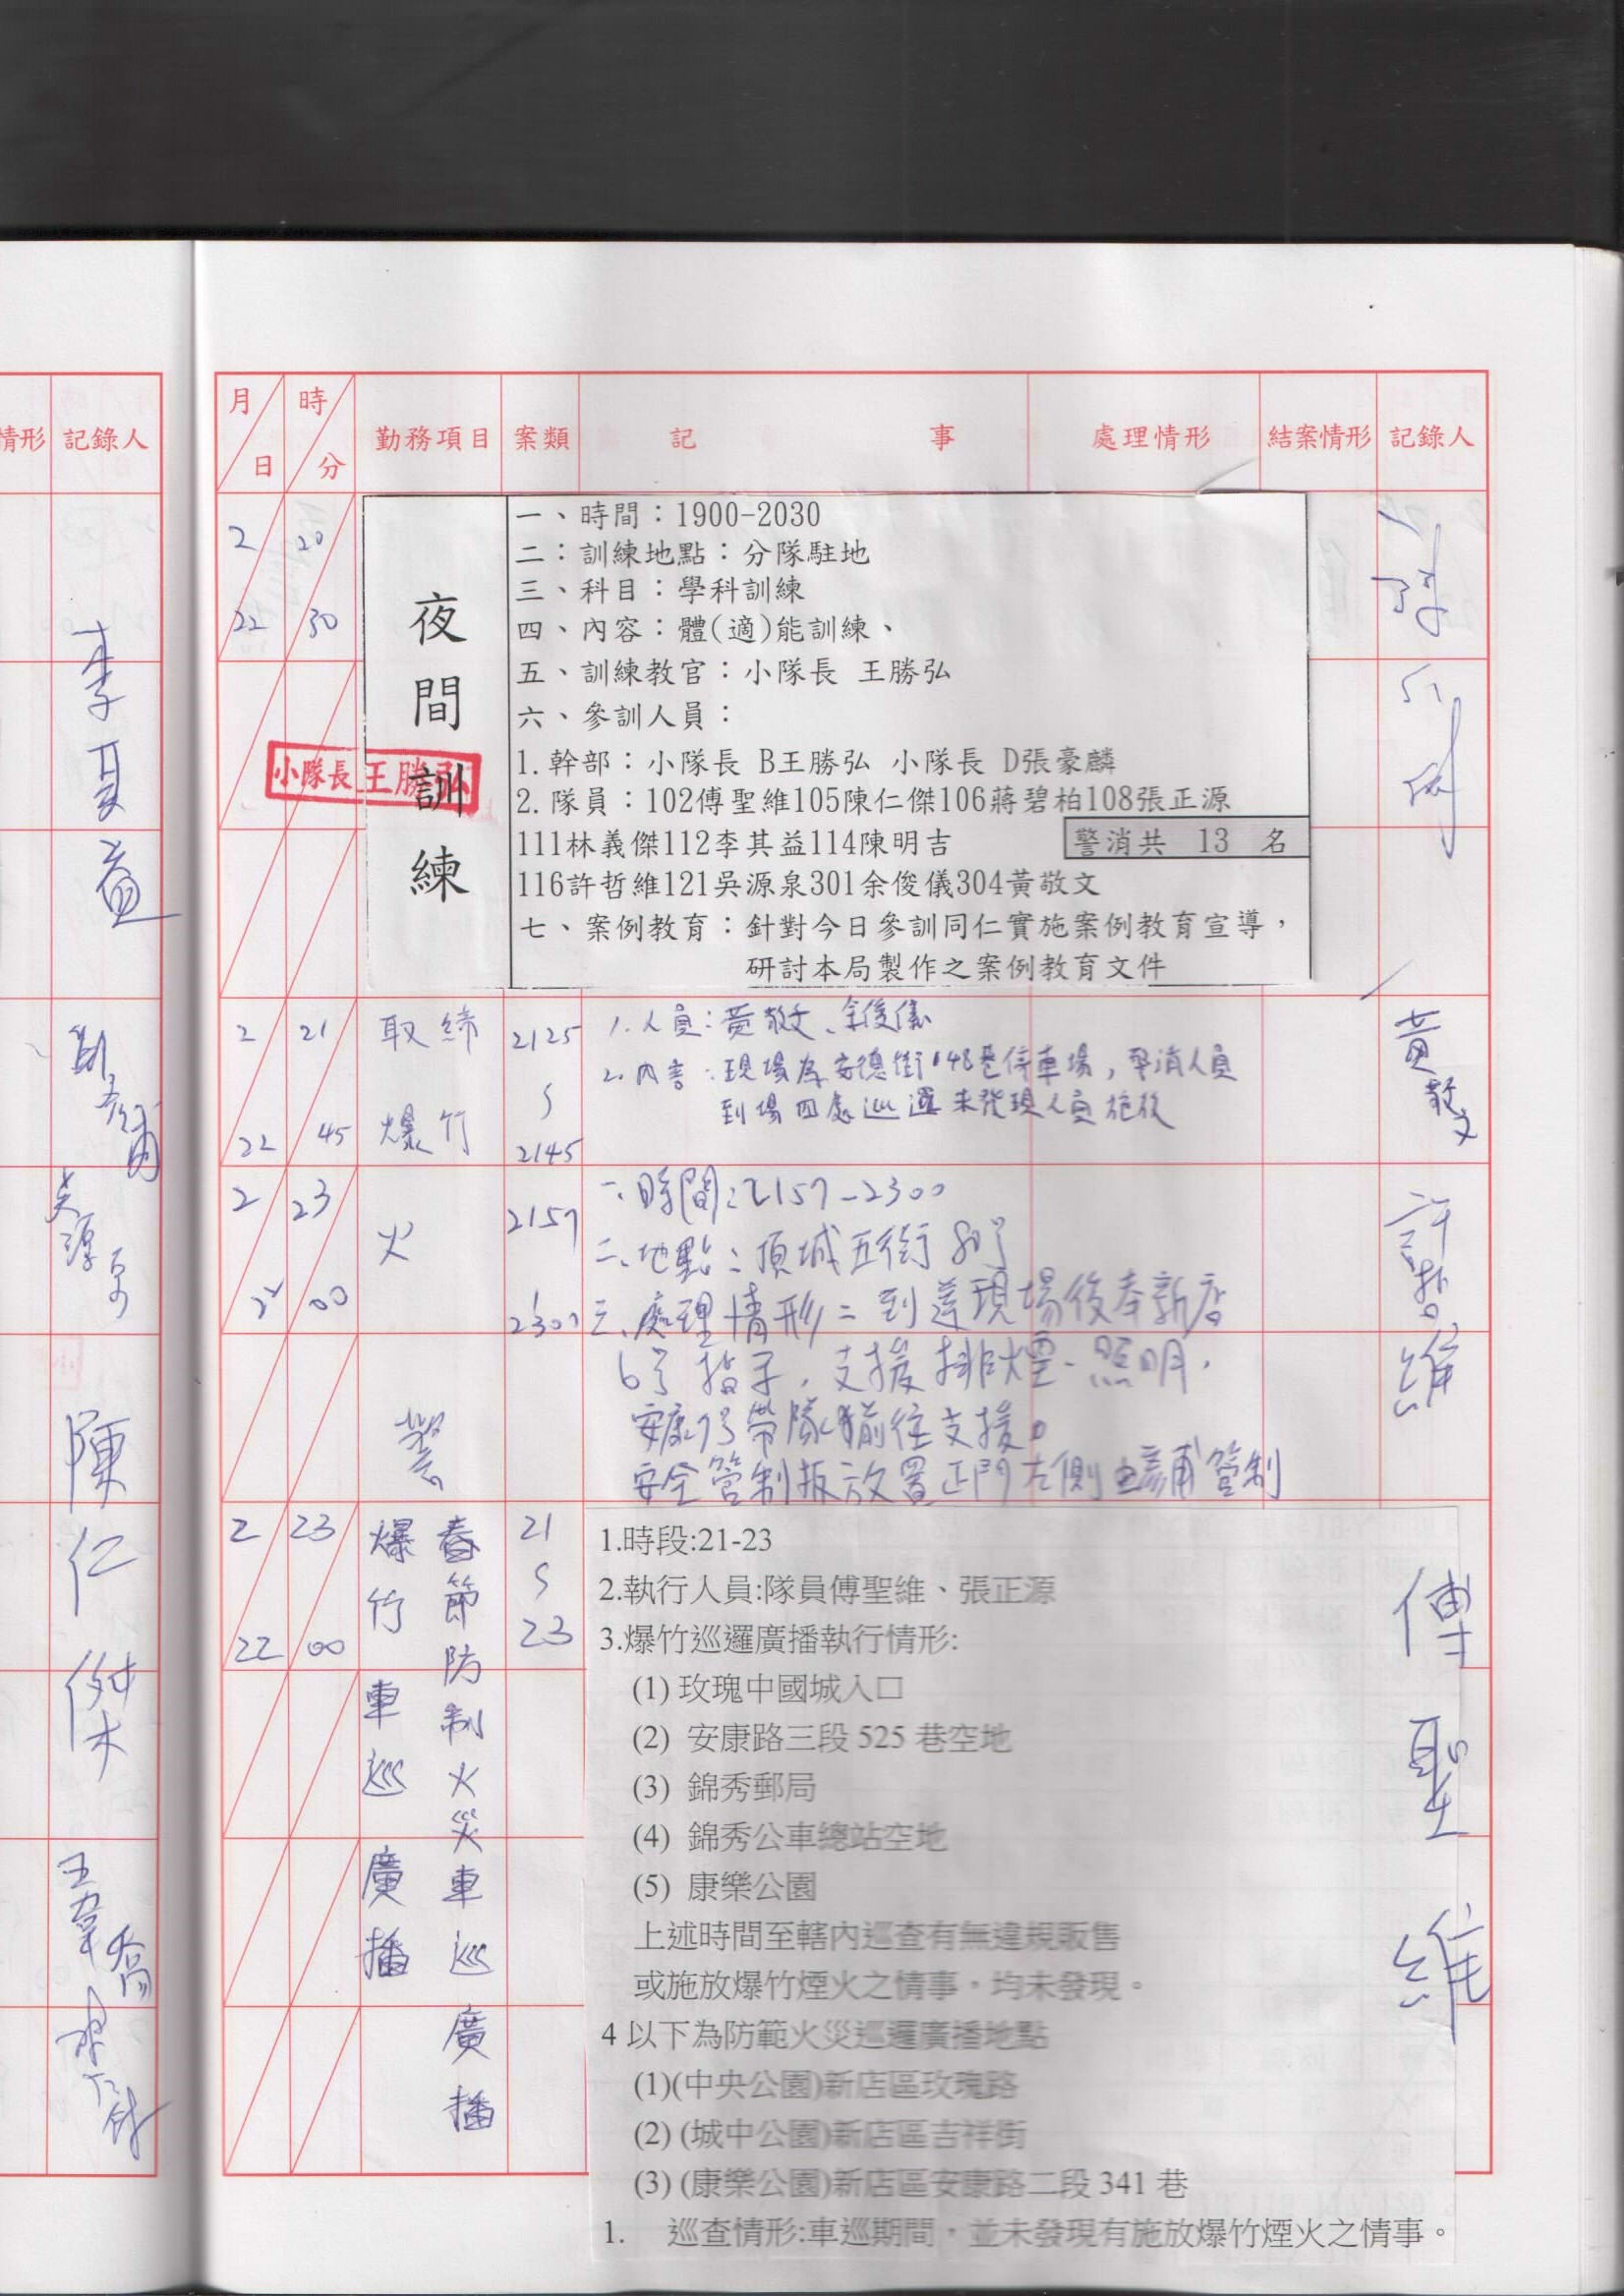 情形 記錄人
李其益
吳源泉
陳仁傑
月 日 時 分 勤務項目 案類 記 事 處理情形 結案情形 記錄人
2 22 20 30
夜間訓練
一、時間：1900-2030
二：訓練地點：分隊駐地
三、科目：學科訓練
四、內容：體(適)能訓練、
五、訓練教官：小隊長 王勝弘
六、參訓人員：
1.幹部：小隊長 B王勝弘 小隊長 D張豪麟
2.隊員：102傅聖維105陳仁傑106蔣碧柏108張正源
111林義傑112李其益114陳明吉
警消共 13 名
116許哲維121吳源泉301余俊儀304黃敬文
七、案例教育：針對今日參訓同仁實施案例教育宣導，
研討本局製作之案例教育文件
小隊長 王勝弘
2 22 21 45
取締爆竹
2125
2145
1.人員：黃敬文、余俊儀
2.內容：現場為安德街148巷停車場，警消人員
到場四處巡邏未發現人員施放
黃敬文
2 22 23 00
火警
2157
2300
一、時間：2157-2300
二、地點：頂城五街8號
三、處理情形：到達現場後奉新店
6號指示，支援排煙、照明，
安康13帶隊前往支援。
安全管制板放置正門左側由彥甫管制
許哲維
2 22 23 00
春節防制火災車巡廣播
爆竹車巡廣播
21
23
1.時段:21-23
2.執行人員:隊員傅聖維、張正源
3.爆竹巡邏廣播執行情形:
(1) 玫瑰中國城入口
(2) 安康路三段 525 巷空地
(3) 錦秀郵局
(4) 錦秀公車總站空地
(5) 康樂公園
上述時間至轄內巡查有無違規販售
或施放爆竹煙火之情事，均未發現。
4 以下為防範火災巡邏廣播地點
(1)(中央公園)新店區玫瑰路
(2) (城中公園)新店區吉祥街
(3) (康樂公園)新店區安康路二段 341 巷
1. 巡查情形:車巡期間，並未發現有施放爆竹煙火之情事。
傅聖維